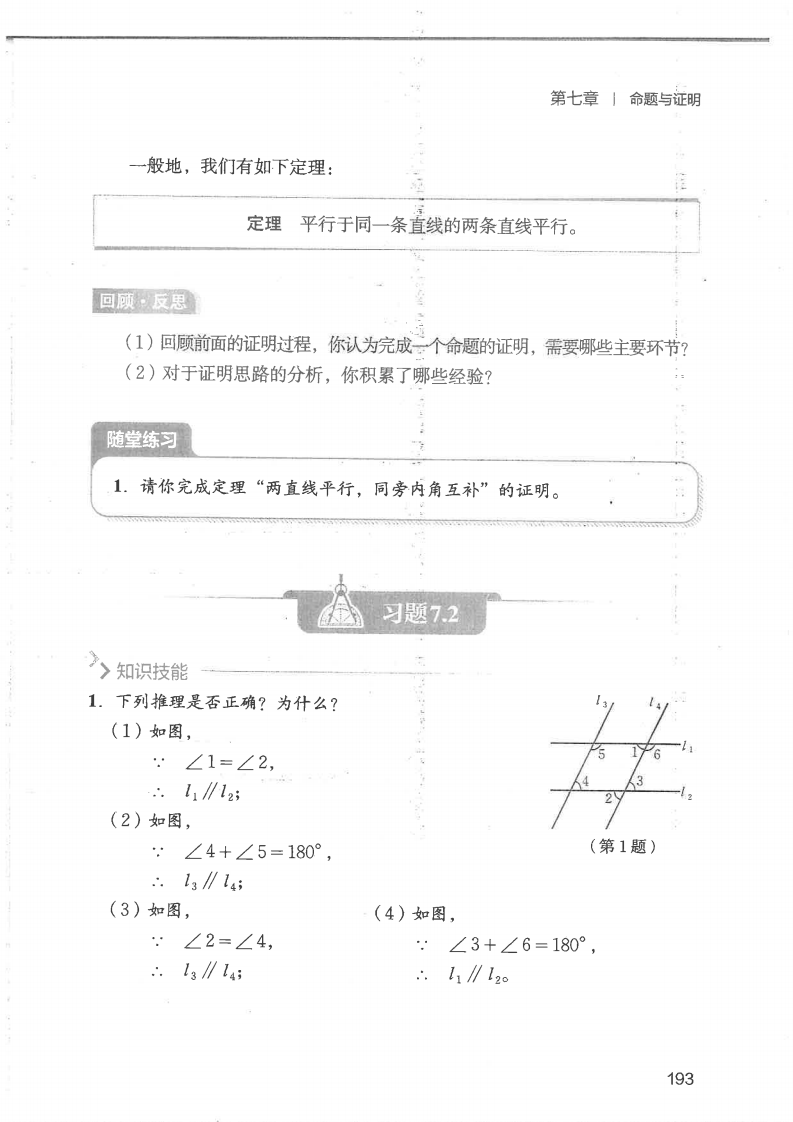 第七章 | 命题与证明
一般地，我们有如下定理：
定理 平行于同一条直线的两条直线平行。
回顾·反思
（1）回顾前面的证明过程，你认为完成一个命题的证明，需要哪些主要环节？
（2）对于证明思路的分析，你积累了哪些经验？
随堂练习
1. 请你完成定理“两直线平行，同旁内角互补”的证明。
习题7.2
知识技能
1. 下列推理是否正确？为什么？
（1）如图，
∵ ∠1＝∠2，
∴ l₁∥l₂；
（2）如图，
∵ ∠4＋∠5＝180°，
∴ l₃∥l₄；
（3）如图，
∵ ∠2＝∠4，
∴ l₃∥l₄；
l₃ l₄
5 1 6 l₁
4 3
2 l₂
（第1题）
（4）如图，
∵ ∠3＋∠6＝180°，
∴ l₁∥l₂。
193